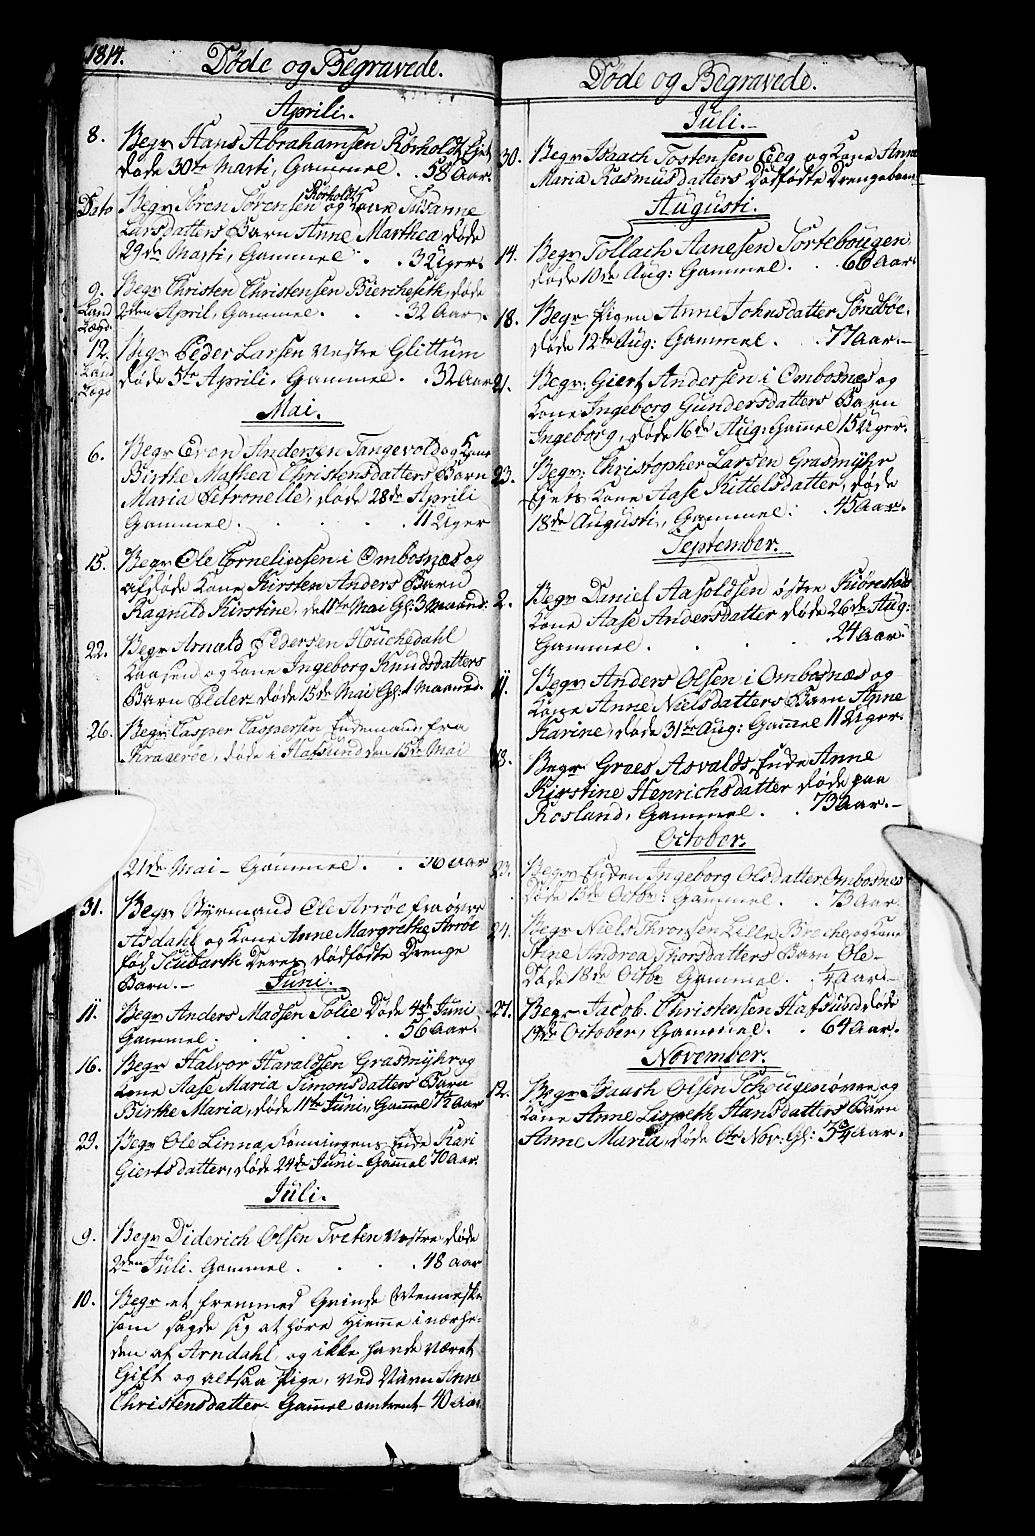 1814.
Døde og Begravede.
Aprili.
8. Begr Hans Abrahamsen Rørholdt Gift
døde 30te Marti, Gammel. . 58 Aar.
Dato Begr Søren Sørensen Rørholdt og Kone Susanne
Larsdatters Barn Anne Marthea, døde
29de Marti, Gammel . . 3 Uger.
9. Begr Christen Christensen Biercheseth, døde
Land 2den April, Gammel. . . 32 Aar.
12. Begr Peder Larsen Vestre Glittum
Land døde 5te Aprili, Gammel. . 32 Aar
Mai.
6. Begr Even Andersen Tangevold og Kone
Birthe Mathea Christensdatters Barn
Maria Petronelle, døde 28de Aprili
Gammel. . . . . 11 Uger
15. Begr Ole Corneliussen i Ombosnæs og
afdøde Kone Kirsten Anders Barn
Ragnild Kirstine, de 11te Mai Gl. 3 Maand.
22. Begr Arnald Pedersen Houchedahl
Kaasen og Kone Ingeborg Knudsdatters
Barn Peder, døde 15de Mai Gl. 1 Maaned.
26. Begr Casper Caspersen Enkemand fra
Kragerøe, døde i Hafsund den 15de Mai
21de Mai - Gammel. . . Aar
31. Begr Styrmand Ole Arrøe fra øvre
Asdahl og Kone Anne Margrethe Arrøe
fød Scubarth Deres dødfødte Drenge
Barn.-
Juni.
11. Begr Anders Madsen Solie Døde 4de Juni
Gammel. . . . . 56 Aar.
16. Begr Halvor Haraldsen Grasmyhr og
Kone Aase Maria Simonsdatters Barn
Birthe Maria, døde 11te Juni, Gammel 1/2 Aar
29. Begr Ole Linna Rønningens Enke Kari
Giertsdatter, døde 24de Juni - Gammel 70 Aar.
Juli.
9. Begr Diderich Olsen Tveten Vestre, døde
2den Juli. Gammel. . . . 48 Aar
10. Begr et fremmed Qvinde Menneske
som sagde sig at høre Hiemme i nærhe-
den af Arndahl, og ikke havde været
Gift og altsaa Pige, ved Navn Anne
Christensdatter. Gammel omtrent - 40 Aar.
Døde og Begravede.
Juli.-
30. Begr Isaach Tostensen Eeg og Kone Anne
Maria Rasmusdatters Dødfødte Drengebarn
Augusti.
14. Begr Tollach Aanesen Sortebougen
døde 10de Aug: Gammel. . . 66 Aar.
18. Begr Pigen Anne Johnsdatter Sondbøe,
døde 12te Aug: Gammel. . 77 Aar.-
21. Begr: Giert Andersen i Ombosnæs og
Kone Ingeborg Gundersdatters Barn
Ingeborg, døde 16de Aug: Gammel 15 Uger.
23. Begr: Christopher Larsen Grasmyhr
Gifts Kone Aase Kittelsdatter, døde
18de Augusti, Gammel: . 45 Aar.
September.
2. Begr Daniel Aasoldsen østre Kiørestads
Kone Aase Andersdatter døde 26de Aug:
Gammel . . . . 24 Aar.
11. Begr Anders Olsen i Ombosnæs og
Kone Anne Nielsdatters Barn Anne
Karine, døde 31te Aug: Gammel 11 Uger.
18. Begr Groes Asvalds Enke Anne
Kirstine Henrichsdatter døde paa
Rosland, Gammel. . 73 Aar.-
October.
23. Begr Enken Ingeborg Olsdatter Ombosnes
Døde 15de Octbr: Gammel. . 73 Aar.
24. Begr Niels Thronsen Lille Broche og Kone
Stine Andrea Thorsdatters Barn Ole-
Døde 18de Octbr Gammel. . Aar.-
27. Begr Jacob Christensen Hafsund, døde
19de October, Gammel. . 64 Aar.
November.
12. Begr Isaach Olsen Schougen øvre og
Kone Anne Lispeth Hansdatters Barn
Anne Maria, døde 6te Nov: Gl: 3/4 Aar.